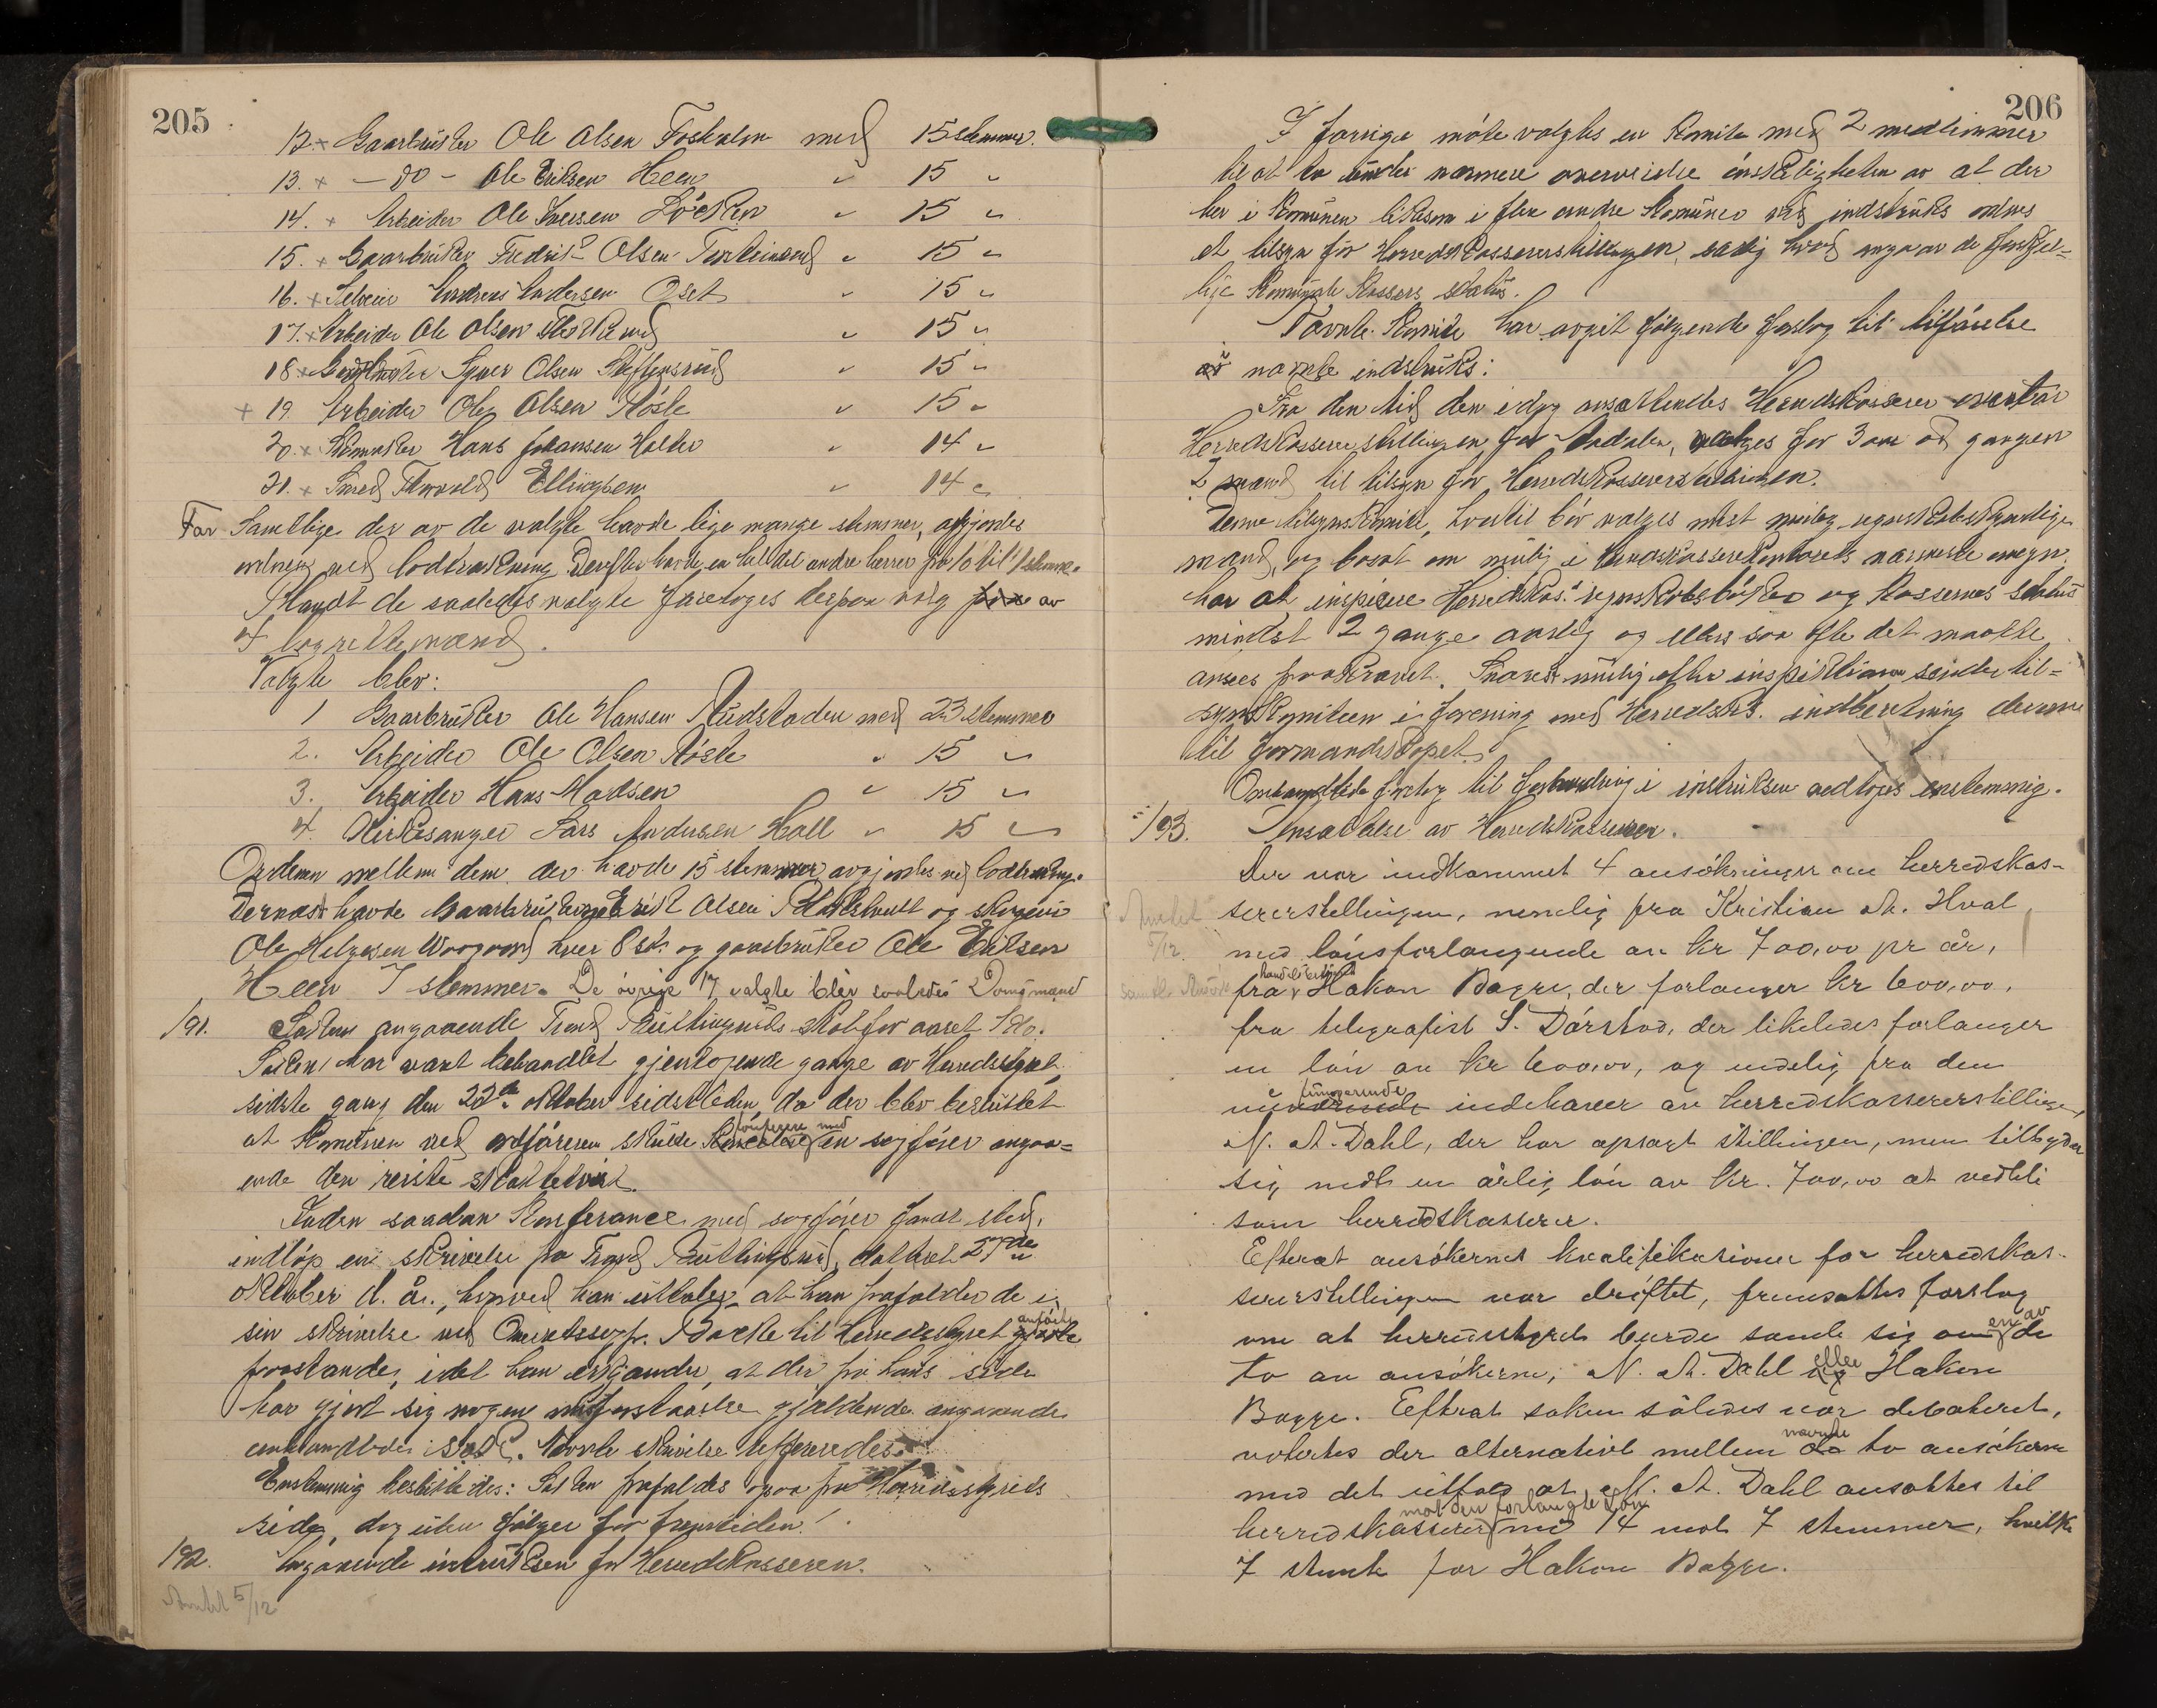 205
12. x Gaarbruker Ole Olsen Foshalm med 15 stemmer.
13. x — do — Ole Eriksen Heen " 15 "
14. x Arbeider Ole Iversen Löcken " 15 "
15. x Gaarbruker Fredrik Olsen " 15 "
16. x Selveier Andreas Andersen Oset " 15 "
17. x Arbeider Ole Olsen " 15 "
18 x Syver Olsen Steffensrud " 15 "
x 19. Arbeider Ole Olsen Röste " 15 "
20. x Hans Johansen Holte " 14 "
21. x Smed Thorvald Ellingsen " 14 "
For Samtlige der av de valgte havde lige mange stemmer, afgjordes
ordnen ved lodtrækning. Derefter havde en heldel andre herrer fra 10 til 1 stemme.
Blandt de saaledes valgte foretoges derpaa valg av
4 lagrettemænd.
Valgte blev:
1 Gaarbruker Ole Hansen Rudstaden med 23 stemmer
2. Arbeider Ole Olsen Röste " 15 "
3. Arbeider Hans Madsen " 15 "
4. Kirkesanger Lars Andersen Hall " 15 "
Ordenen mellem dem der havde 15 stemmer avgjordes ved lodtrækning.
Dernæst havde Gaarbruker Olsen og
Ole Helgesen hver 8 st. og gaarbruker Ole Eriksen
Heen 7 stemmer. De övrige 17 valgte blev saaledes Domsmænd
191. Saken angaaende Trond Buttingsruds skat for aaret 1910.
Saken har vært behandlet gjentagende gange av Herredsstyret,
sidste gang den 22de oktober sidstleden, da der blev besluttet
at Komunen ved ordföreren skulde konferere med en sagförer angaa-
ende den reiste skattetvist.
Inden saadan Konferance med sagförer fandt sted,
indlöp en skrivelse fra Trond Buttingsrud, datert 27de
oktober d. år., hvorved han uttaler, at han frafalder de i
sin skrivelse ved Overretssagf. Backe til Herredsstyret anförte
paastande, idet han erkjender, at der fra hans side
har gjort sig nogen misforstaaelse gjældende angaaende
omhandlede skat. Nævnte skrivelse refereredes.
Enstemmig besluttedes: Saken frafaldes ogsaa fra Herredsstyrets
side, dog uten fölger for fremtiden.
192. Angaaende instruksen for Herredskasseren.
Anmeldt 5/12
206
I forrige möte valgtes en Komite med 2 medlemmer
til at ta under nærmere overveielse önskeligheten av at der
her i Komunen likesom i flere andre Komuner ved indstruks ordnes
et tilsyn for Herredskassererstillingen, særlig hvad angaar de forskjel-
lige Komunale Kassers status.
Nævnte Komite har avgit fölgende forslag til tilföielse
i nævnte indstruks:
Fra den tid den idag ansættendes Herredskasserer overtar
Herredskassererstillingen for Aadalen, vælges for 3 aar ad gangen
2 mænd til tilsyn for Herredskassererstillingen.
Denne tilsynskomite, hvortil bör vælges mest mulig regnskabskyndige
mænd, og bosat om mulig i Herredskassererkontorets nærmeste omegn,
har at inspisere Herredskas. regnskabsböker og Kassernes status
mindst 2 gange aarlig og ellers saa ofte det maatte
ansees paakrævet. Snarest mulig efter inspektionen sender til-
synskomiteen i forening med Herredsk. indberetning derom
til formandskapet.
Omhandlede forslag til forandring i instruksen vedtages enstemmig.
193. Ansættelse av Herredskasserer.
Der var indkommet 4 ansökninger om herredskas-
sererstillingen, nemlig fra Kristian M. Hval,
med lönsforlangende av kr 700,00 pr år,
fra Hakon Bagge, der forlanger kr 600,00,
fra telegrafist S. Dörstad, der likeledes forlanger
en lön av kr 600,00, og endelig fra den
fungerende indehaver av herredskassererstillingen,
N. A. Dahl, der har opsagt stillingen, men tilbyder
sig, mot en årlig lön av kr. 700,00 at vedbli
som herredskasserer.
Efterat ansökernes kvalifikasioner for herredskas-
sererstillingen var dröftet, fremsattes forslag
om at herredsstyret burde samle sig om en av de
to av ansökerne, N. A. Dahl eller Hakon
Bagge. Efterat saken således var debatert,
votertes der alternativt mellem nævnte to ansökere
med det utfald at N. A. Dahl ansattes til
herredskasserer mot den forlangte lön med 14 mot 7 stemmer, hvilke
7 stemte for Hakon Bagge.
Anmeldt
5/12.